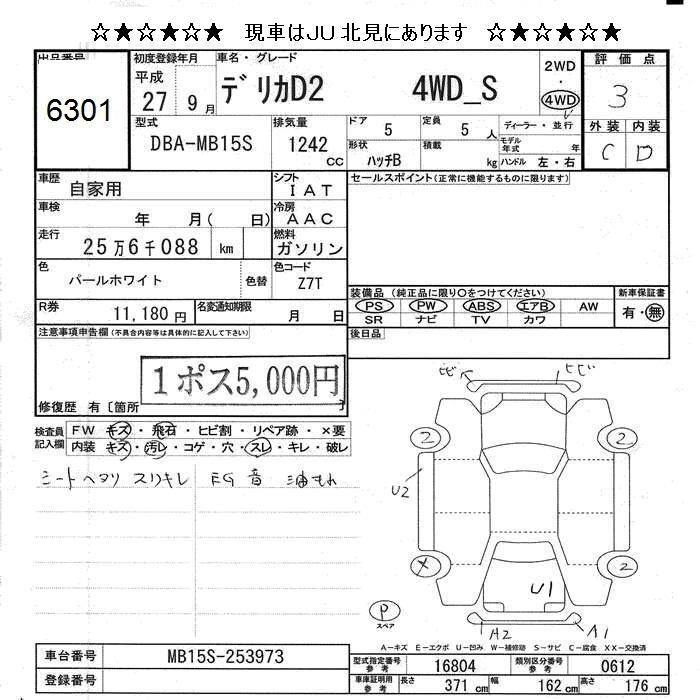 ☆★☆★☆★ 現車はJU北見にあります ☆★☆★☆★
出品番号
6301
初度登録年月
平成
27 9月
車名・グレード
デリカD2 4WD_S
2WD
・
4WD
評価点
3
外装 内装
C D
型式
DBA-MB15S
排気量
1242
CC
ドア
5
定員
5人
ディーラー・並行
形状
ハッチB
積載
kg
モデル年式 年
ハンドル 左・右
車歴
自家用
シフト
IAT
車検
年 月( 日)
冷房
AAC
走行
25万6千088 km
燃料
ガソリン
色
パールホワイト
色替
色コード
Z7T
R券
11,180円
名変通知期限
月 日
セールスポイント(正常に機能するものに限ります)
装備品(純正品に限り○をつけてください)
PS PW ABS エアB AW
SR ナビ TV カワ
新車保証書
有・無
後日品
注意事項申告欄(不具合内容等は具体的に記入して下さい)
1ポス5,000円
修復歴 有〔箇所 〕
検査員記入欄
FW キズ・飛石・ヒビ割・リペア跡・×要
内装 キズ・汚レ・コゲ・穴・スレ・キレ・破レ
シートヘタリ スリキレ EG音 油もれ
ヒビ ヒビ
2 2
U2
X 2
U1
P
スペア
A2 A1
A-キズ E-エクボ U-凹み W-補修跡 S-サビ C-腐食 XX-交換済
車台番号
MB15S-253973
登録番号
型式指定番号
参考
16804
類別区分番号
参考
0612
車庫証明用
参考
長さ 371cm 幅 162cm 高さ 176cm